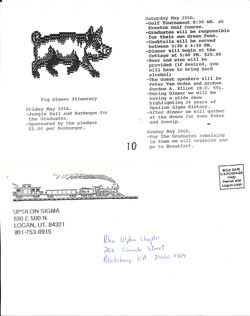 Pig Dinner Itinerary
Friday May 24th.
-Jungle Hall and Barbeque for
the Graduates.
-Sponsored by the pledges
$2.00 per hamburger.
Saturday May 25th.
-Golf Tournament 8:30 AM. at
Preston Golf Course.
-Graduates will be responsible
for their own Green Fees.
-Cocktails will be served
between 3:30 & 4:30 PM.
-Dinner will begin at the
Cottage at 5:00 PM. $25.00
-Beer and wine will be
provided (if desired, you
will have to bring hard
alcohol)
-The Guest speakers will be
Peter Van Orden and Archon
Gordon A. Elliot (B.C. 58).
-During Dinner we will be
having a slide show
highlighting 14 years of
Upsilon Sigma History.
-After dinner we will gather
at the House for some Poker
and Gossip.
Sunday May 26th.
-For the Graduates remaining
in town we will organize and
go to Breakfast.
10
UPSILON SIGMA
636 E 500 N
LOGAN, UT. 84321
801-753-8915
Rho Alpha Chapter
Church Street
Blacksburg VA